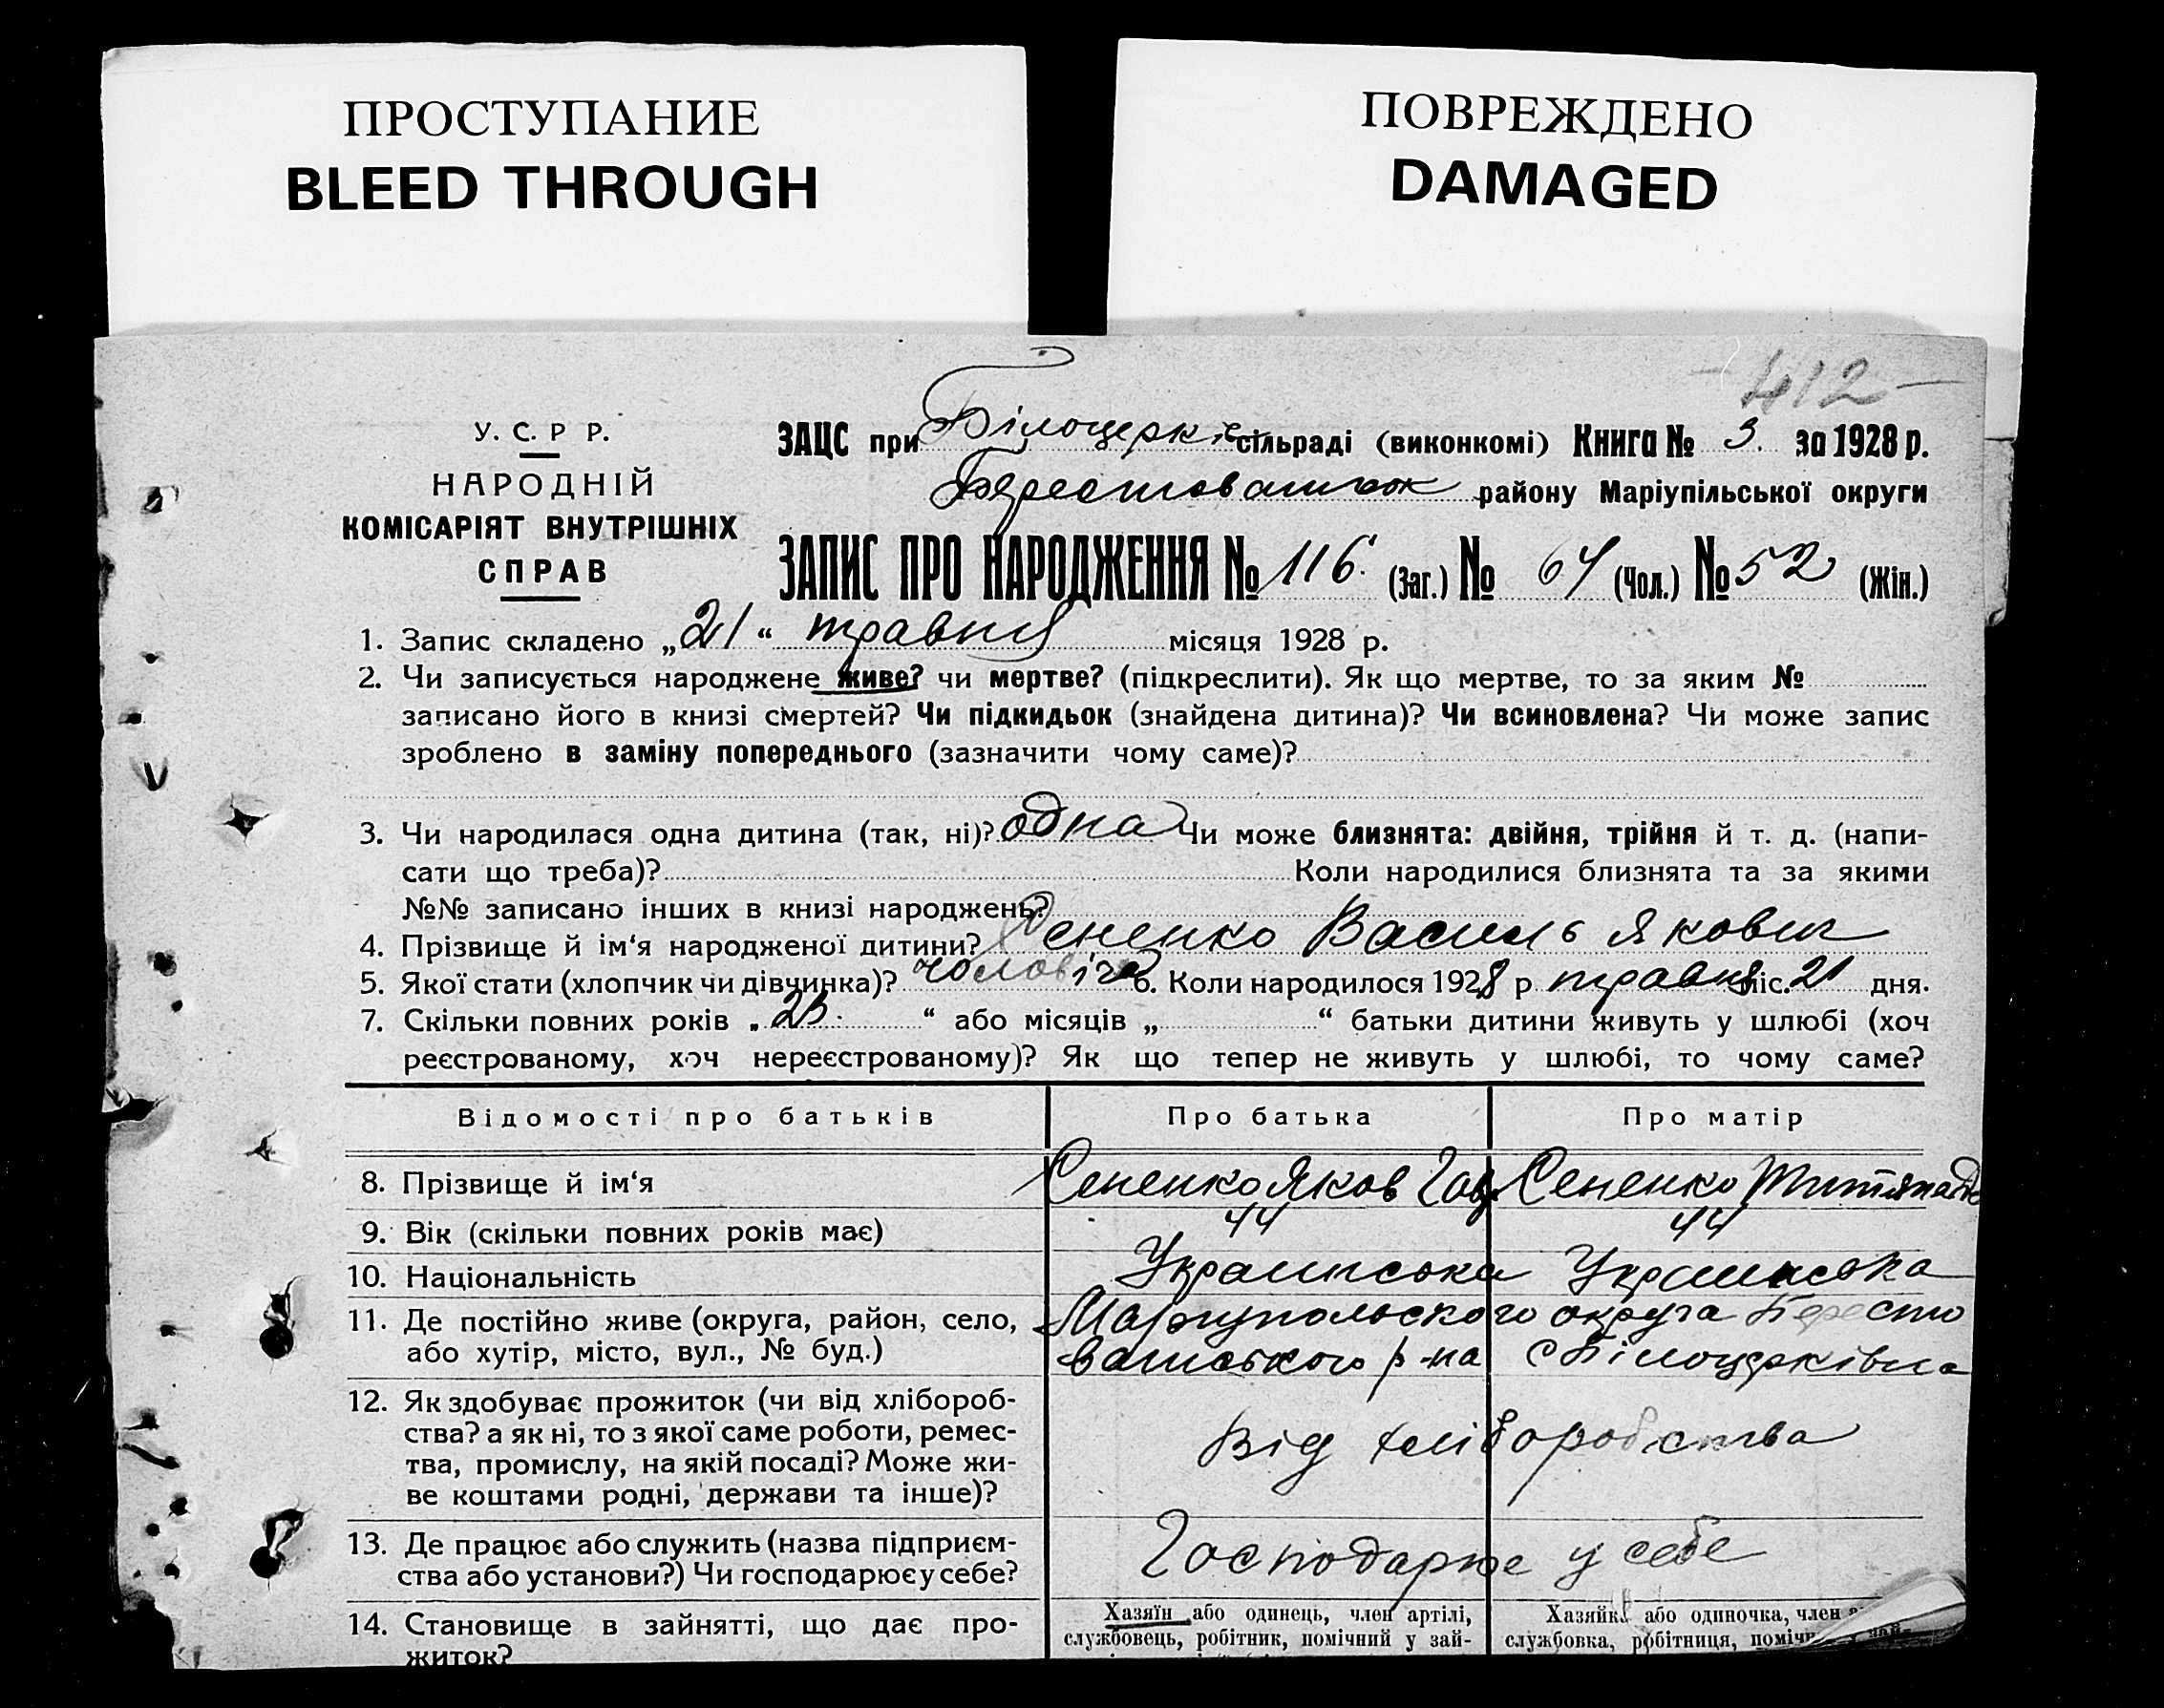 ПРОСТУПАНИЕ
BLEED THROUGH
ПОВРЕЖДЕНО
DAMAGED
412
У. С. Р Р.
НАРОДНІЙ
КОМІСАРІЯТ ВНУТРІШНІХ
СПРАВ
ЗАЦС при Білоцерків сільраді (виконкомі) Книга № 3. за 1928 р.
району Маріупільської округи
ЗАПИС ПРО НАРОДЖЕННЯ № 116. (Заг.) № 64 (Чол.) № 52 (Жін.)
1. Запис складено „21“ травня місяця 1928 р.
2. Чи записується народжене живе? чи мертве? (підкреслити). Як що мертве, то за яким №
записано його в книзі смертей? Чи підкидьок (знайдена дитина)? Чи всиновлена? Чи може запис
зроблено в заміну попереднього (зазначити чому саме)?
3. Чи народилася одна дитина (так, ні)? одна Чи може близнята: двійня, трійня й т. д. (напи-
сати що треба)? Коли народилися близнята та за якими
№№ записано інших в книзі народжень?
4. Прізвище й ім‘я народженої дитини? Сененко Василь Якович
5. Якої стати (хлопчик чи дівчинка)? чоловіча 6. Коли народилося 1928 р травня міс. 21 дня.
7. Скільки повних років „ 25. “ або місяців „ “ батьки дитини живуть у шлюбі (хоч
реєстрованому, хоч нереєстрованому)? Як що тепер не живуть у шлюбі, то чому саме?
Відомості про батьків Про батька Про матір
8. Прізвище й ім‘я Сененко Яков Сененко
9. Вік (скільки повних років має) 44 44
10. Національність Українська Українська
11. Де постійно живе (округа, район, село, Маріупольского округа Бересто
або хутір, місто, вул., № буд.) ватського р-на с Білоцерківка
12. Як здобуває прожиток (чи від хлібороб-
ства? а як ні, то з якої саме роботи, ремес-
тва, промислу, на якій посаді? Може жи-
ве коштами родні, держави та інше)?
Від хліборобства
13. Де працює або служить (назва підприєм-
ства або установи?) Чи господарює у себе?
Господарює у себе
14. Становище в зайнятті, що дає про-
житок?
Хазяїн або одинець, член артілі,
службовець, робітник, помічний у зай-
Хазяйка або одиночка, член
службовка, робітниця,